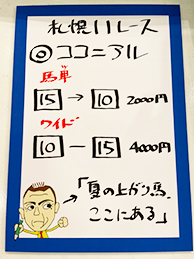 札幌11レース
◎ココニアル
馬単
15→10 2000円
ワイド
10-15 4000円
「夏の上がり馬、
ここにある」